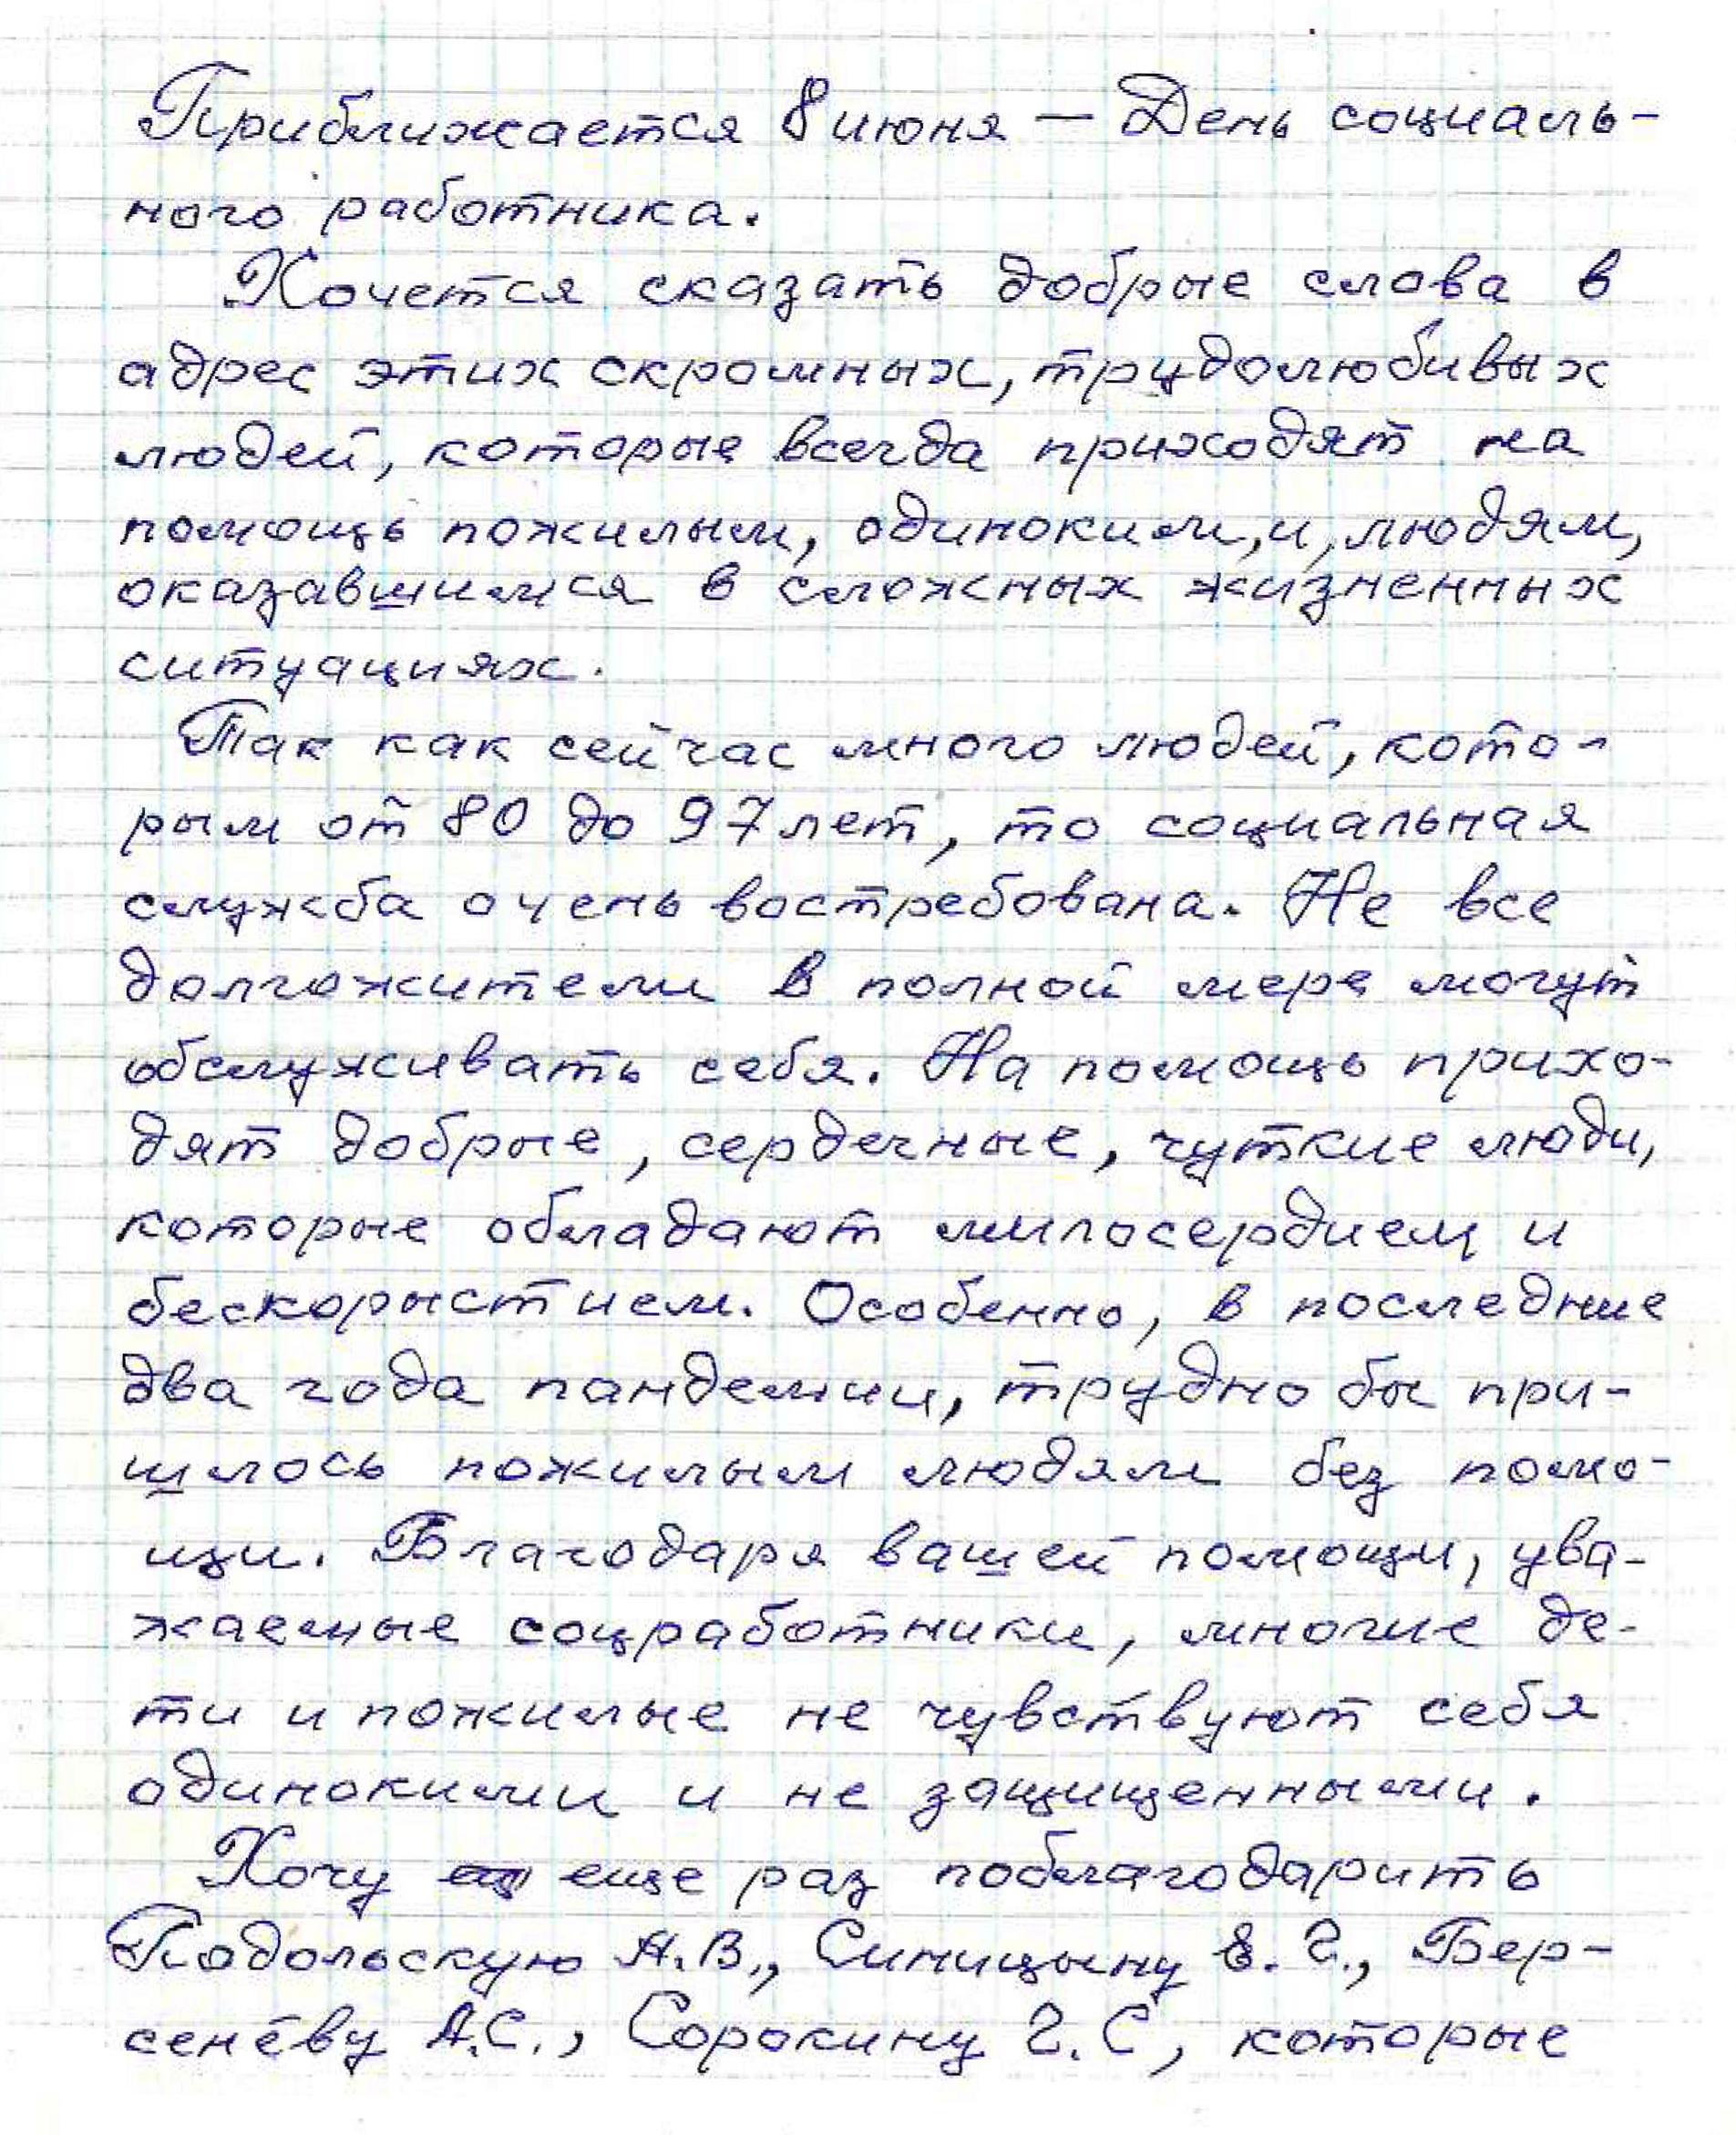 Приближается 8 июня — День социаль-
ного работника.
Хочется сказать добрые слова в
адрес этих скромных, трудолюбивых
людей, которые всегда приходят на
помощь пожилым, одиноким, и, людям,
оказавшимся в сложных жизненных
ситуациях.
Так как сейчас много людей, кото-
рым от 80 до 97 лет, то социальная
служба очень востребована. Не все
долгожители в полной мере могут
обслуживать себя. На помощь прихо-
дят добрые, сердечные, чуткие люди,
которые обладают милосердием и
бескорыстием. Особенно, в последние
два года пандемии, трудно бы при-
шлось пожилым людям без помо-
щи. Благодаря вашей помощи, ува-
жаемые соцработники, многие де-
ти и пожилые не чувствуют себя
одинокими и не защищенными.
Хочу еще раз поблагодарить
Подольскую А.В., Синицыну Е.Г., Бер-
сенёву А.С., Сорокину Г.С, которые